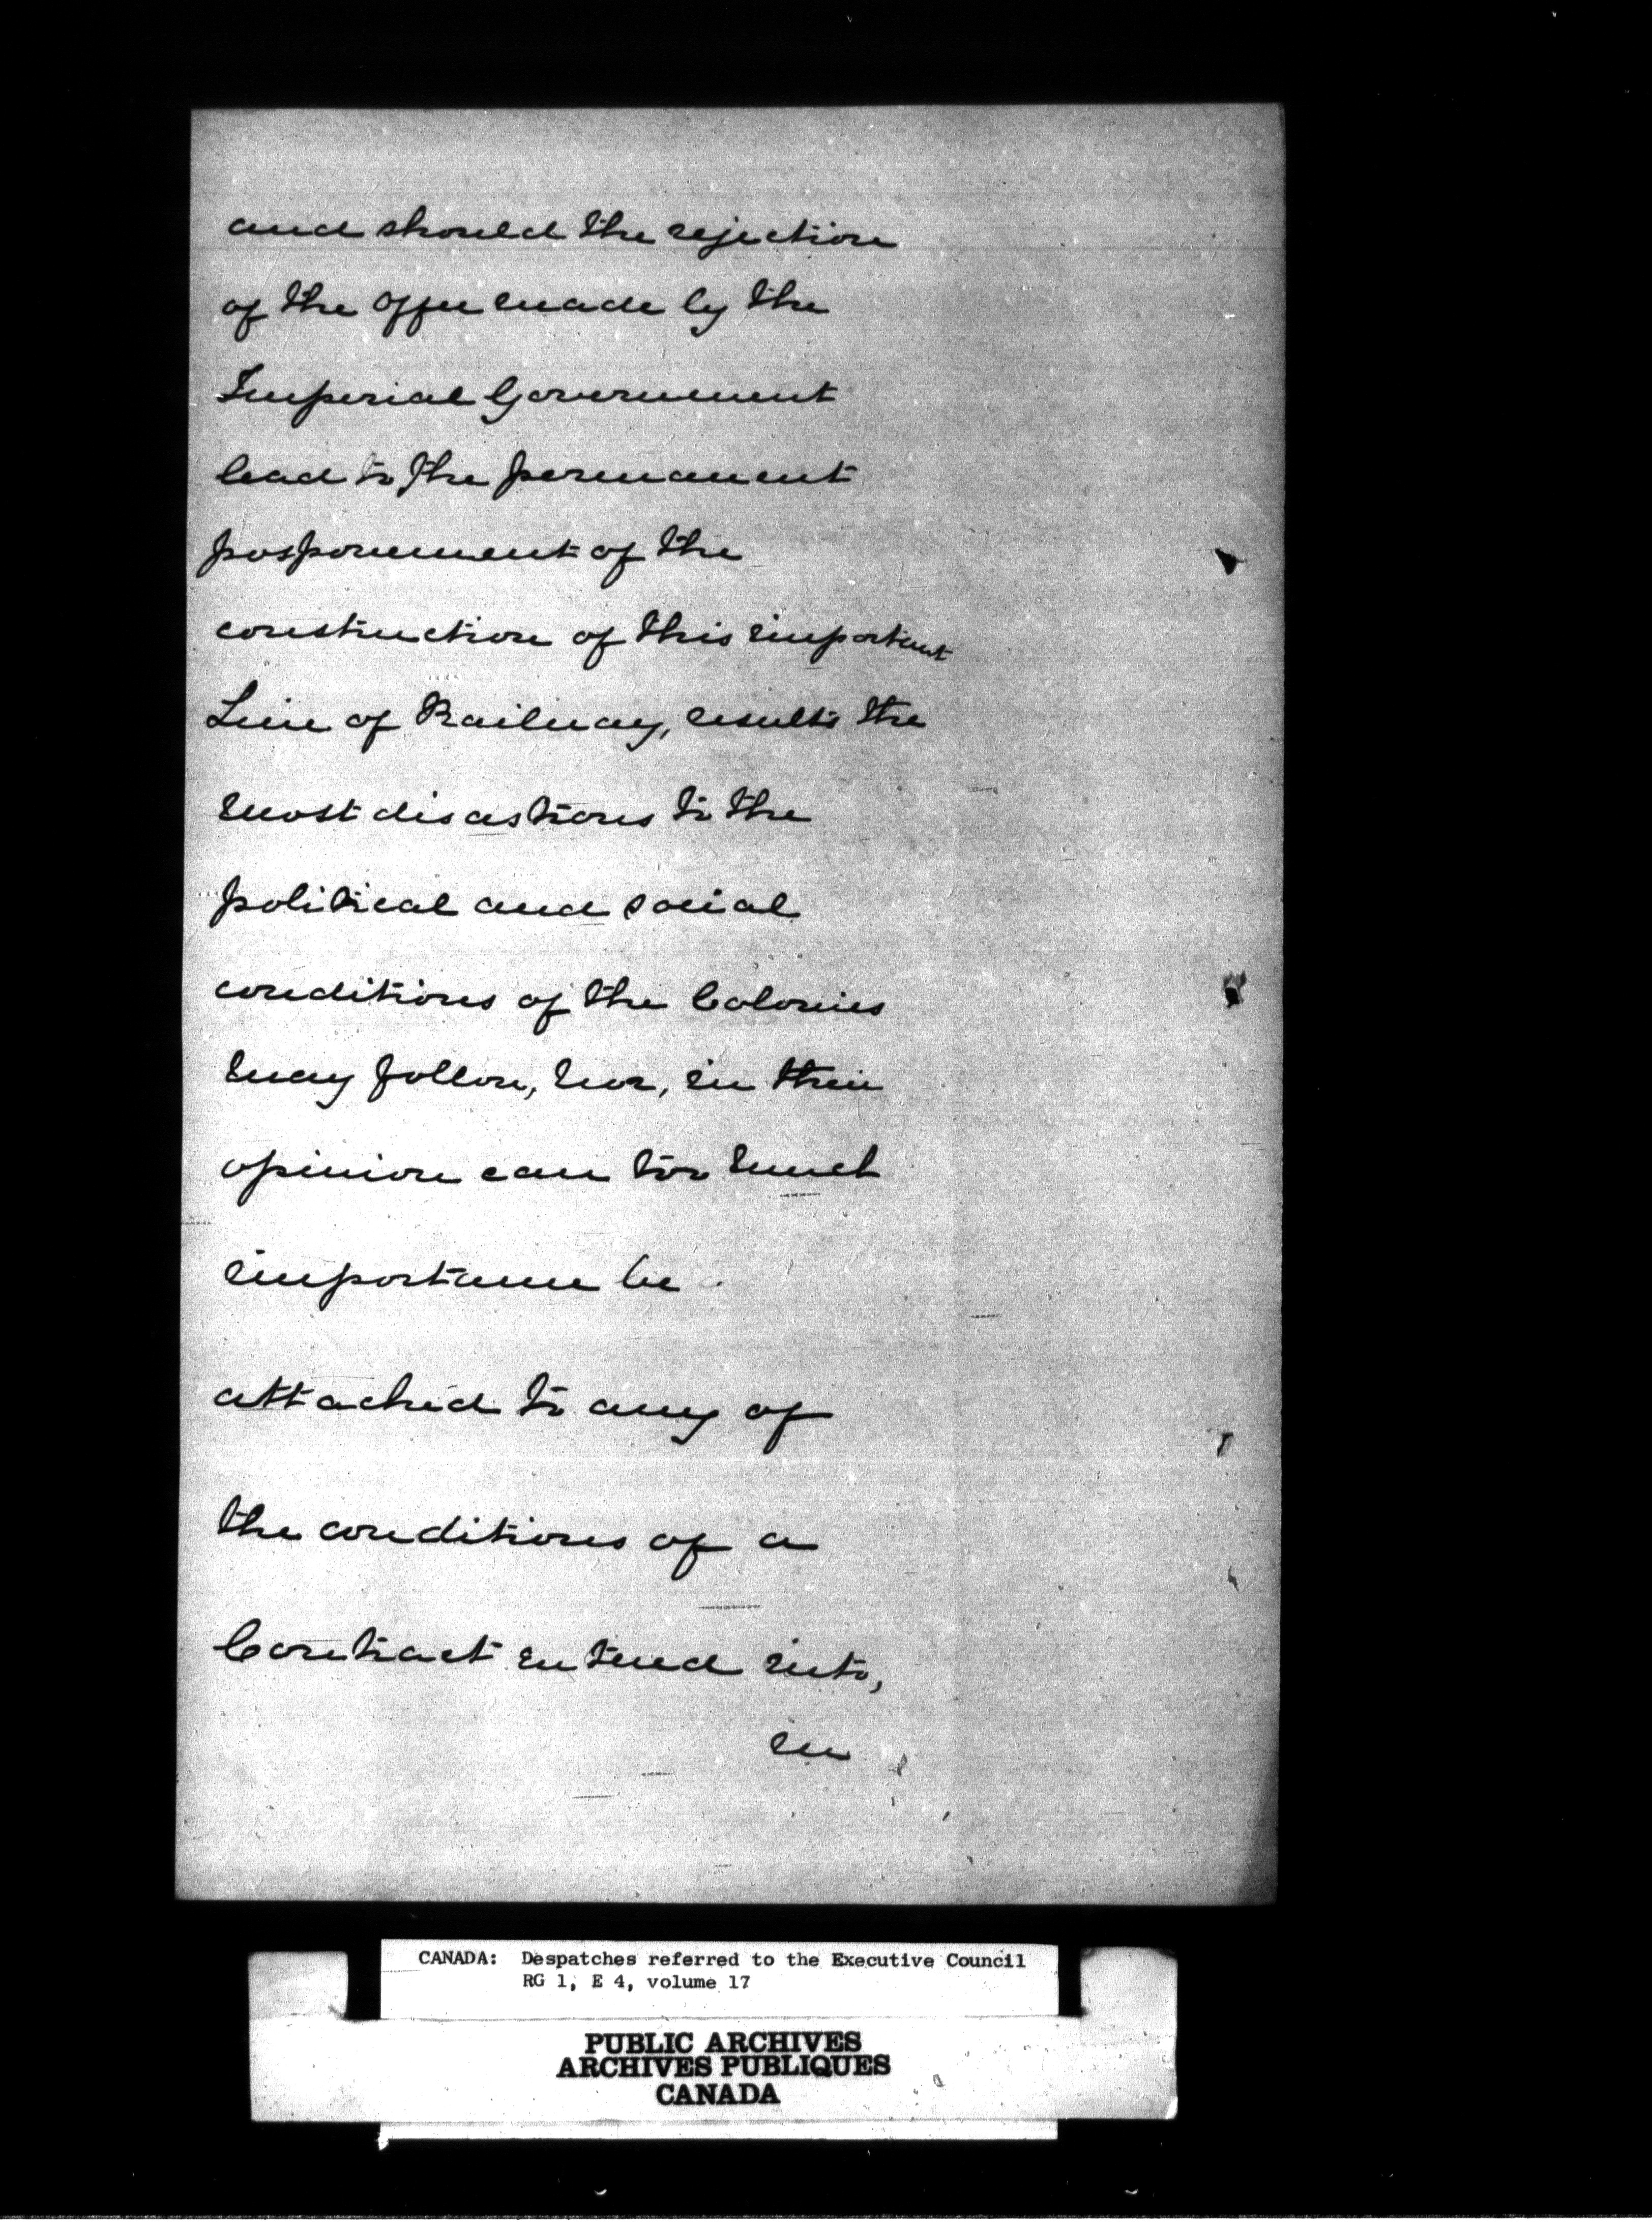 and should the rejection
of the offer made by the
Imperial Government
lead to the permanent
posponement of the
construction of this important
Line of Railway, results the
most disastrous to the
political and social
conditions of the Colonies
may follow, nor, in their
opinion can too much
importance be
attached to any of
the conditions of a
Contract entered into,
in
CANADA: Despatches referred to the Executive Council
RG 1, E 4, volume 17
PUBLIC ARCHIVES
ARCHIVES PUBLIQUES
CANADA